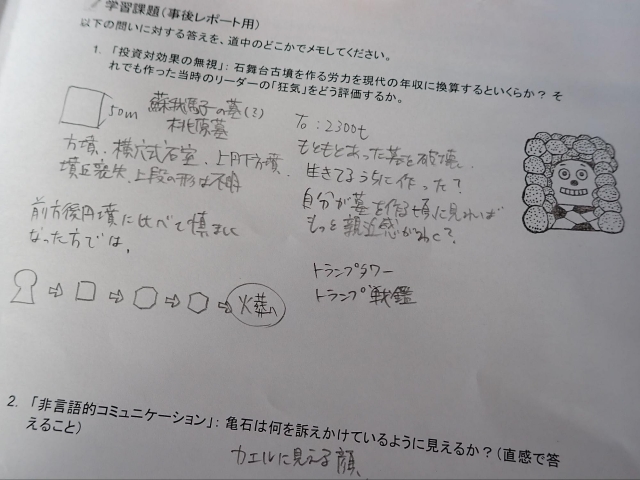 学習課題(事後レポート用)
以下の問いに対する答えを、道中のどこかでメモしてください。
1. 「投資対効果の無視」: 石舞台古墳を作る労力を現代の年収に換算するといくらか? そ
れでも作った当時のリーダーの「狂気」をどう評価するか。
50m
蘇我馬子の墓(?)
桃原墓
方墳、横穴式石室、上円下方墳、
墳丘喪失、上段の形は不明
前方後円墳に比べて慎ましく
なった方では。
火葬へ
To:2300t
もともとあった墓を破壊し
生きてるうちに作った?
自分が墓を作る頃に見れば
もっと親近感がわく?
トランプタワー
トランプ戦鑑
2. 「非言語的コミュニケーション」: 亀石は何を訴えかけているように見えるか? (直感で答
えること)
カエルに見える顔